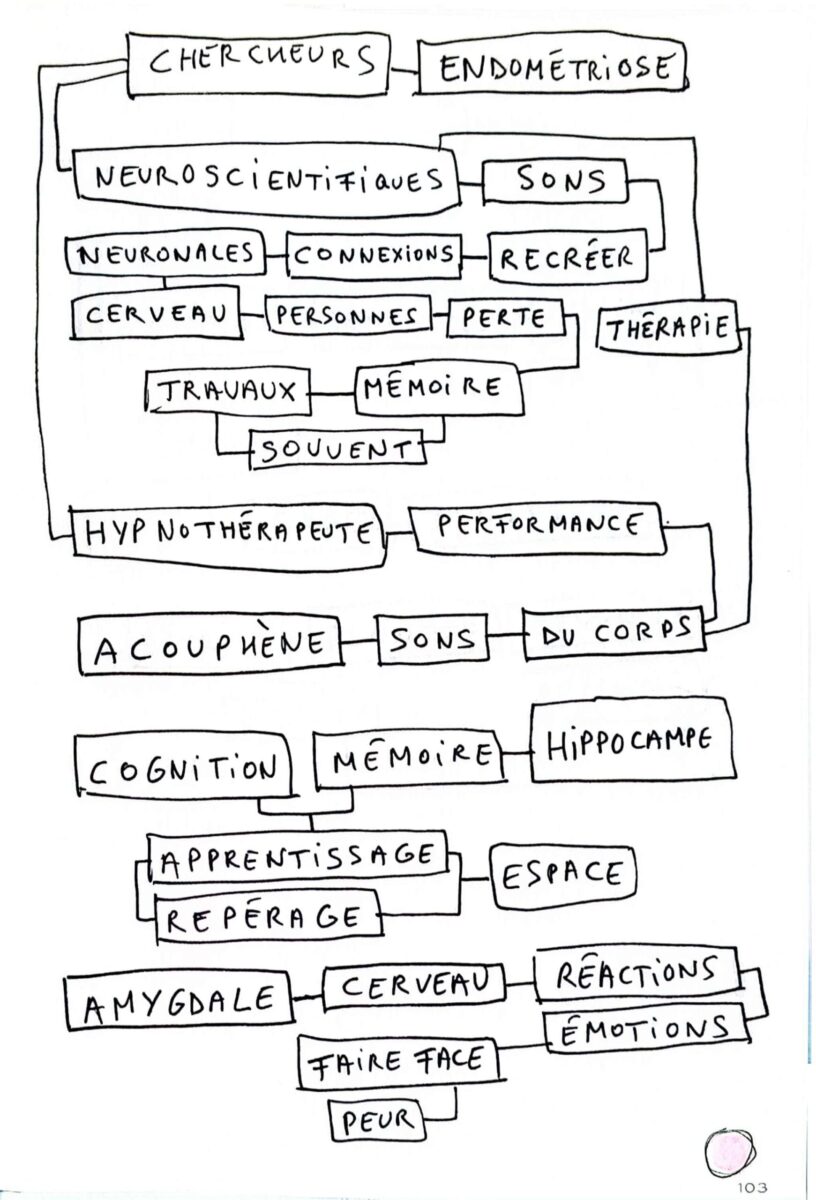 CHERCHEURS ENDOMÉTRIOSE
NEUROSCIENTIFIQUES SONS
NEURONALES CONNEXIONS RECRÉER
CERVEAU PERSONNES PERTE THÉRAPIE
TRAVAUX MÉMOIRE
SOUVENT
HYPNOTHÉRAPEUTE PERFORMANCE
ACOUPHÈNE SONS DU CORPS
COGNITION MÉMOIRE HIPPOCAMPE
APPRENTISSAGE ESPACE
REPÉRAGE
AMYGDALE CERVEAU RÉACTIONS
ÉMOTIONS
FAIRE FACE
PEUR
103